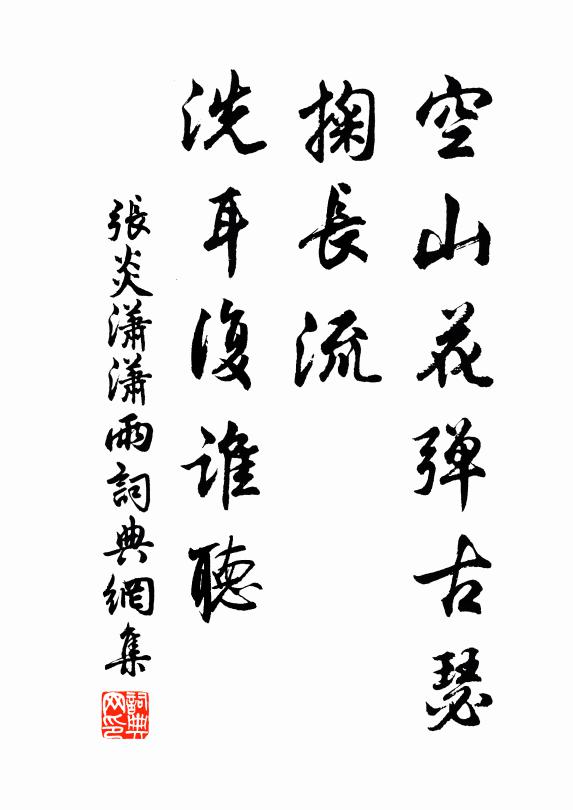 空山花弹古瑟
掬長流
洗耳復誰聽
張炎瀟瀟雨詞典網集
詞典网印